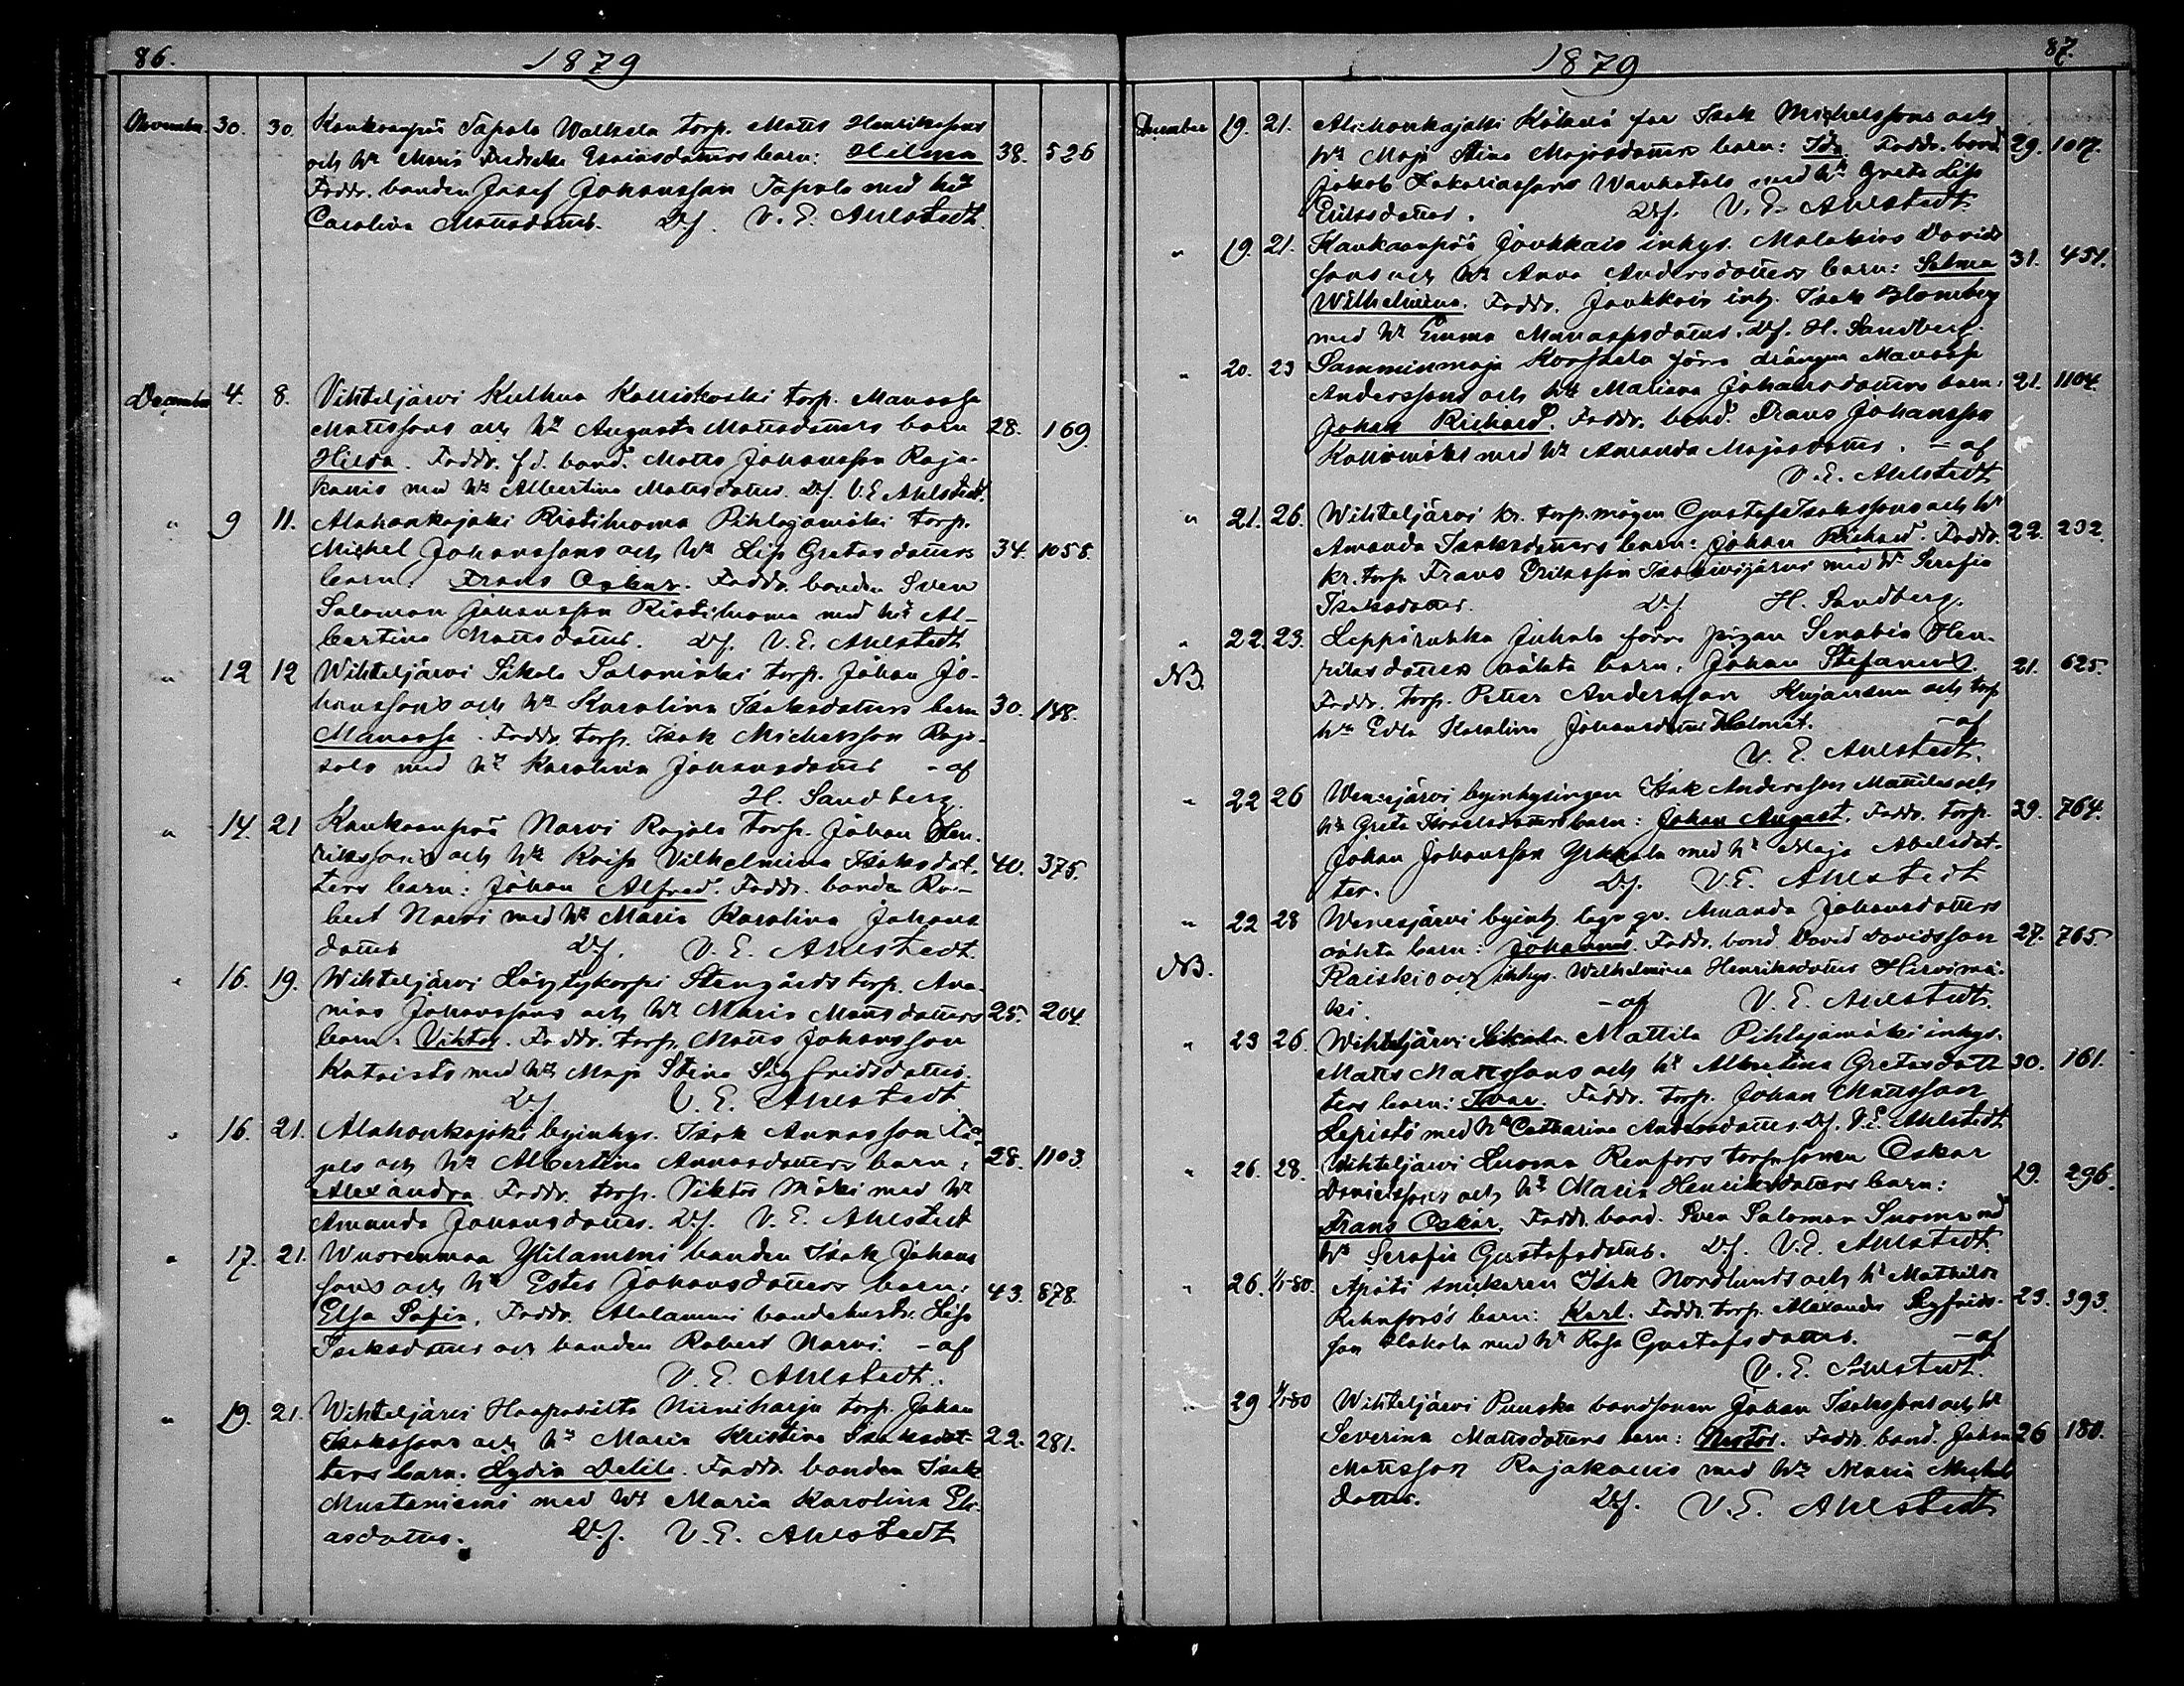 86.
1879
November 30. 30. Kankaanpää Tapala Walkela torp. Matts Henrikssons
och h: Maria Fredrika Esaiasdotters barn: Hilma 38. 526
Faddr. bonden Josef Johansson Tapala med h:
Carolina Mattsdotter. Df. V. E. Ahlstedt.
December 4. 8. Vihteljärvi Kuthua Kalliokoski torp. Manasse
Mattssons och h: Augusta Mattsdotters barn 28. 169
Hilda. Faddr. f d. bond. Matts Johansson Raja-
kallio med h: Albertina Mattsdotter. Df. V. E. Ahlstedt.
" 9 11. Alahonkajoki Ristihuoma Pihlajamäki torp.
Michel Johanssons och h: Lisa Gretasdotters 34. 1058.
barn: Frans Oskar. Faddr. bonden Sven
Salomon Johansson Ristihuoma med h: Al-
bertina Mattsdotter. Df. V. E. Ahlstedt
" 12 12 Wihteljärvi Sikala Salomäki torp. Johan Jo-
hanssons och h: Karolina Isaksdotters barn 30. 148.
Manasse. Faddr. torp. Isak Michelsson Raja-
salo med h: Karolina Johansdotter - af
H. Sandberg.
" 14. 21 Kankaanpää Narvi Rajala torp. Johan Hen-
rikssons och h: Kaisa Vilhelmina Isaksdot- 40. 375.
ters barn: Johan Alfred. Faddr. bonden Ro-
bert Narvi med h: Maria Karolina Johans
dotter Df. V. E. Ahlstedt.
" 16. 19. Wihteljärvi Löyttykorpi Stengårds torp. Ana-
nias Johanssons och h: Maria Mattsdotters 25. 204.
barn: Viktor. Faddr. torp. Matts Johansson
Kataisto med h: Maja Stina Sigfridsdotter.
Df. V. E. Ahlstedt
" 16. 21. Alahonkajoki byinhys. Isak Annasson
och h: Albertina Annasdotters barn: 28. 1103.
Alexandra. Faddr. torp. Viktor Mäki med h:
Amanda Johansdotter. Df. V. E. Ahlstedt
" 17. 21. Wuorenmaa Ylilammi bonden Isak Johans
sons och h: Ester Johansdotters barn: 43. 878.
Elsa Sofia. Faddr. Alalammi bondehustr. Lisa
Isaksdotter och bonden Robert Narvi. - af
V. E. Ahlstedt.
" 19. 21. Wihteljärvi Haapasilta Niiniharju torp. Johan
Isakssons och h: Maria Kristina Isaksdot- 22. 281.
ters barn: Lydia Delila. Faddr. bonden Isak
Mustaniemi med h: Maria Karolina Eli-
asdotter. Df. V. E. Ahlstedt
87.
1879
December 19. 21. Alahonkajoki Kökelä far Isak Michelssons och
h: Maja Stina Majasdotters barn: Ida Faddr. bond. 29. 1017.
Jakob Zakariassons Wanhatalo med h: Greta Lisa
Eriksdotter. Df. V. E. Ahlstedt.
" 19. 21. Kankaanpää Joukkais inhys. Malakias Davids
sons och h: Anna Andersdotters barn: Selma 31. 451.
Wilhelmina. Faddr. Joukkais inh. Isak Blomberg
med h: Emma Manassesdotter. Df. H. Sandberg.
" 20. 23 Samminmaja Korpela förra drängen Manasse
Anderssons och h: Mariana Johansdotters barn: 21. 1104.
Johan Richard. Faddr. bond. Frans Johansson
med h: Amanda Majasdotter. - af
V. E. Ahlstedt
" 21. 26. Wihteljärvi kr. torp. mågen Gustaf Isakssons och h:
Amanda Isaksdotters barn: Johan Richard. Faddr. 22. 232.
kr. torp. Frans Eriksson med h: Serafia
Isaksdotter. Df. H. Sandberg.
" 22. 23. Leppäruhka Juhala förra pigan Senabia Hen-
NB. riksdotters oäkta barn: Johan Stefanus. 21. 625.
Faddr. torp. Petter Andersson Kujansuu och torp
h: Edla Karolina Johansdotter Halmet. - af
V. E. Ahlstedt.
" 22 26 Wenesjärvi byinhysingen Isak Andersson Mattilas och
h: Greta Israelsdotters barn: Johan August. Faddr. torp. 39. 764.
Johan Johansson Yrkkola med h: Maja Abelsdot-
ter. Df. V. E. Ahlstedt
" 22 28 Wenesjärvi byinh. lägr. qv. Amanda Johansdotters
oäkta barn: Johannes. Faddr. bond. David Davidsson 27. 765.
NB. Raiskio och inhys. Wilhelmina Henriksdotter Hirvimä-
ki. - af V. E. Ahlstedt.
" 23 26 Wihteljärvi Sikala Mattila Pihlajamäki inhys.
Matts Mattssons och h: Albertina Gretasdott- 30. 161.
ters barn: Ivar. Faddr. torp. Johan Mattsson
Lepistö med h: Catharina Andersdotter. Df. V. E. Ahlstedt
" 26. 28. Wihteljärvi Luoma Renfors torpsonen Oskar
Danielssons och h: Maria Henriksdotters barn: 29. 296.
Frans Oskar. Faddr. bond. Sven Salomon Luoma md
h: Serafia Gustafsdotter. Df. V. E. Ahlstedt.
" 26. 1/1-80. Ajosti snickaren Isak Nordlunds och h: Mathilda
Rehnfors's barn: Karl. Faddr. torp. Alexander Sigfrids- 23. 393.
son Hakala med h: Rosa Gustafsdotter. - af
V. E. Ahlstedt.
" 29 1/1-80 Wihteljärvi Punska bondsonen Johan Isakssons och h:
Severina Mattsdotters barn: Nestor. Faddr. bond. Johan 26 180.
Mattsson Rajakallio med h: Maria Michels
dotter. Df. V. E. Ahlstedt